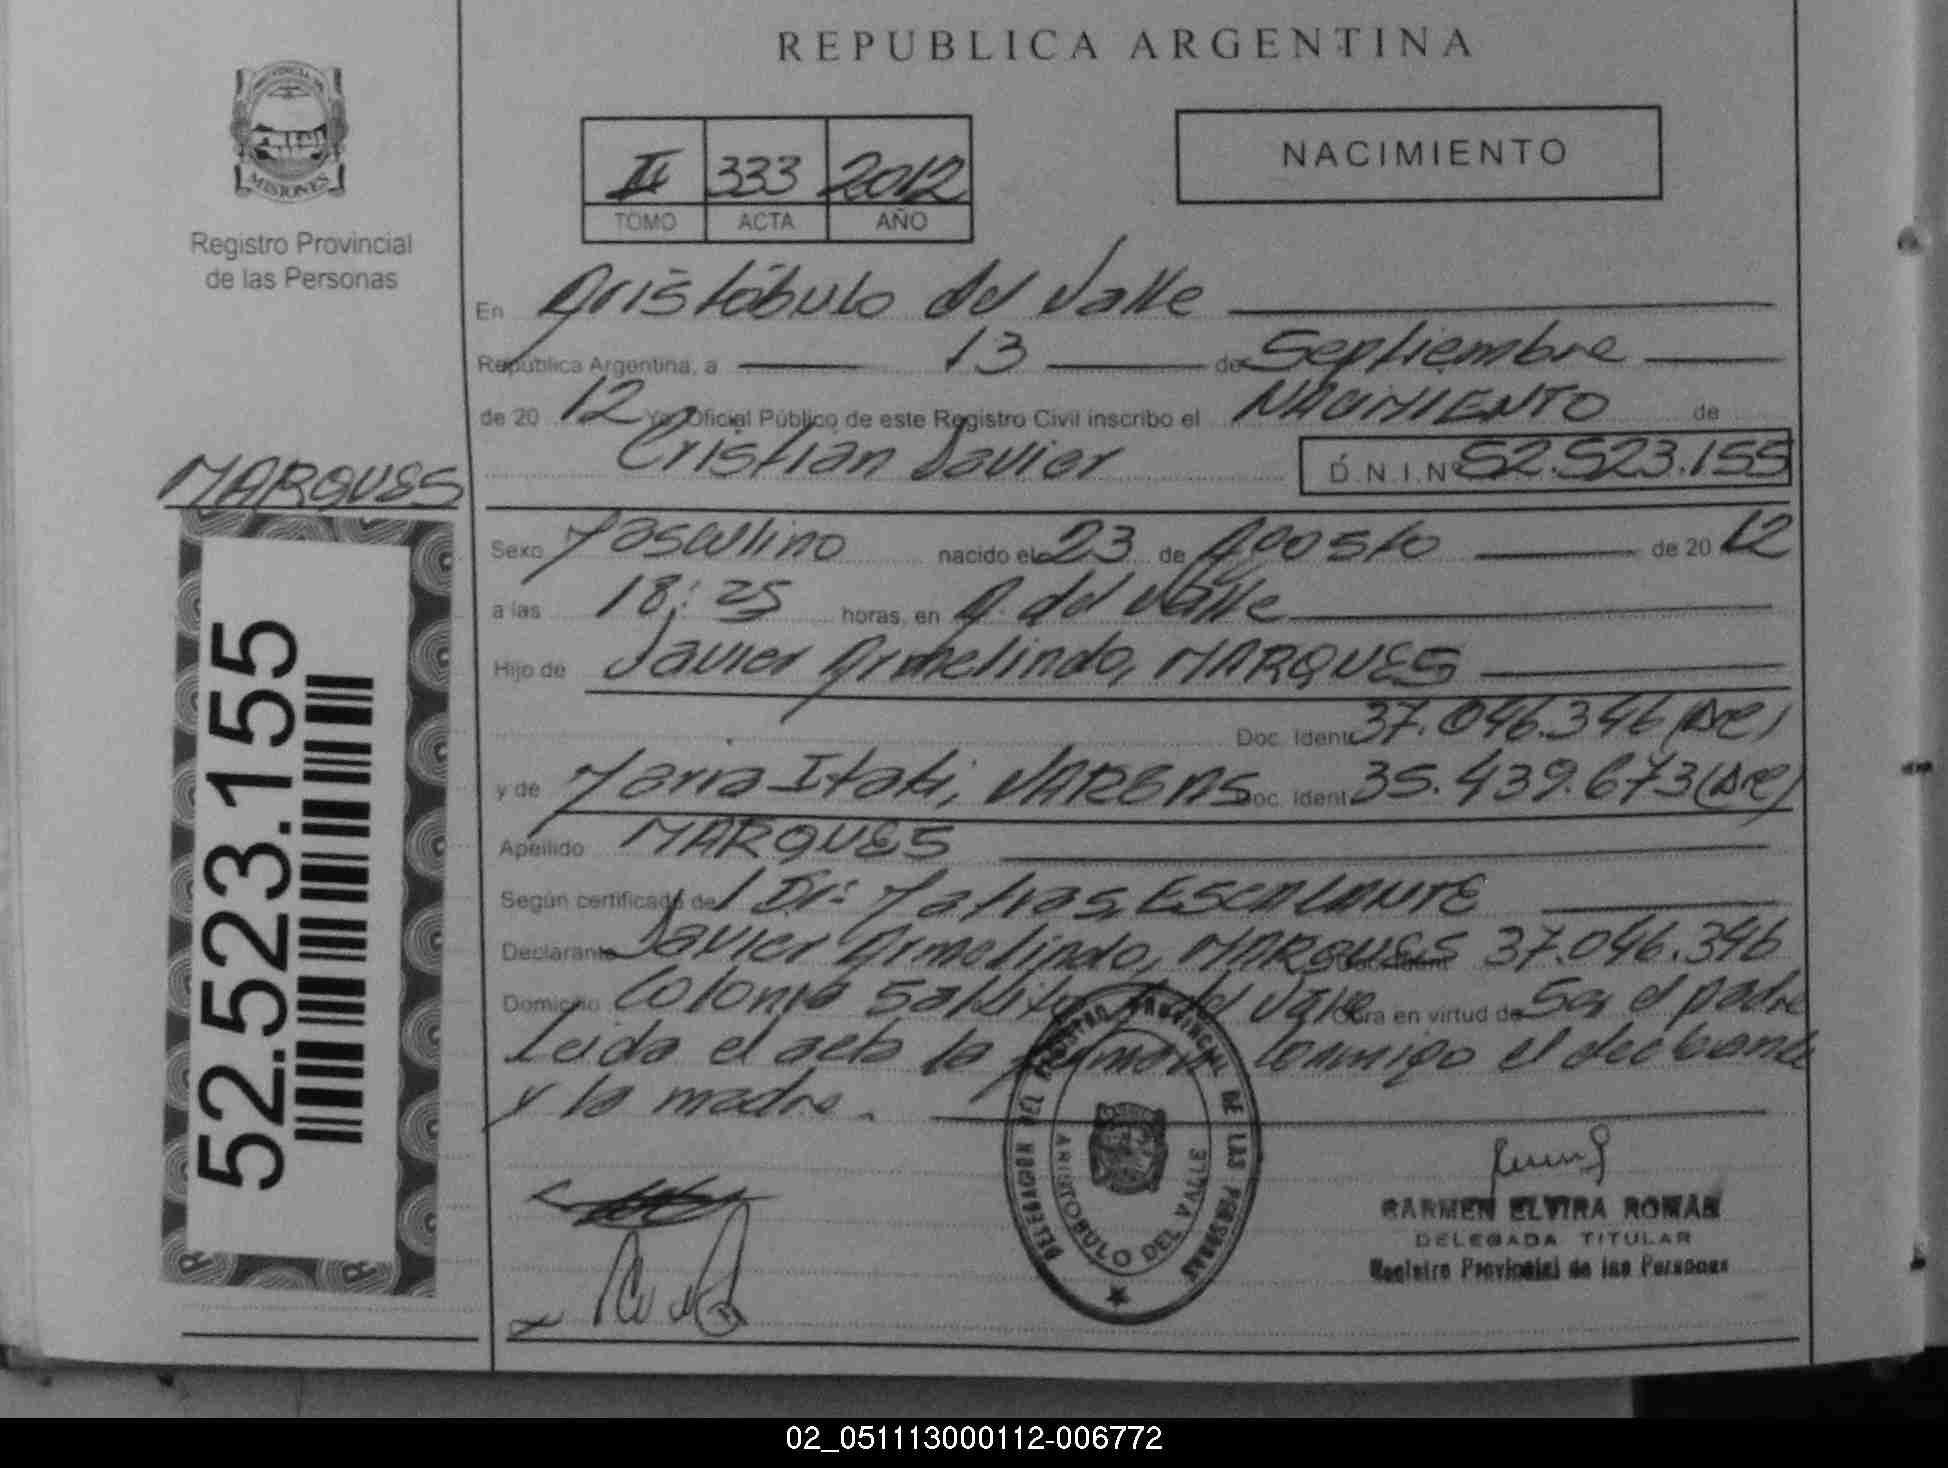 REPUBLICA ARGENTINA
PROVINCIA DE
MISIONES
Registro Provincial
de las Personas
II 333 2012
TOMO ACTA AÑO
NACIMIENTO
En Aristóbulo del Valle
República Argentina, a 13 de Septiembre
de 20 12 Yo, Oficial Público de este Registro Civil inscribo el NACIMIENTO de
Cristian Javier D.N.I.Nº 52.523.155
MARQUES
52.523.155
Sexo Masculino nacido el 23 de Agosto de 20 12
a las 18:25 horas, en A. del Valle
Hijo de Javier Armelindo, MARQUES
Doc. Ident. 37.046.346
y de Maria Itati, VARGAS Doc. Ident. 35.439.673
Apellido MARQUES
Según certificado de Dr: Matias, ESCALANTE
Declarante Javier Armelindo, MARQUES 37.046.346
Domicilio Colonia Saltito A. del Valle Obra en virtud de Ser el padre
Leida el acta la firman conmigo el declarante
y la madre.
DELEGACION DEL REGISTRO PROVINCIAL DE LAS PERSONAS
ARISTOBULO DEL VALLE
CARMEN ELVIRA ROMAN
DELEGADA TITULAR
Registro Provincial de las Personas
02_051113000112-006772